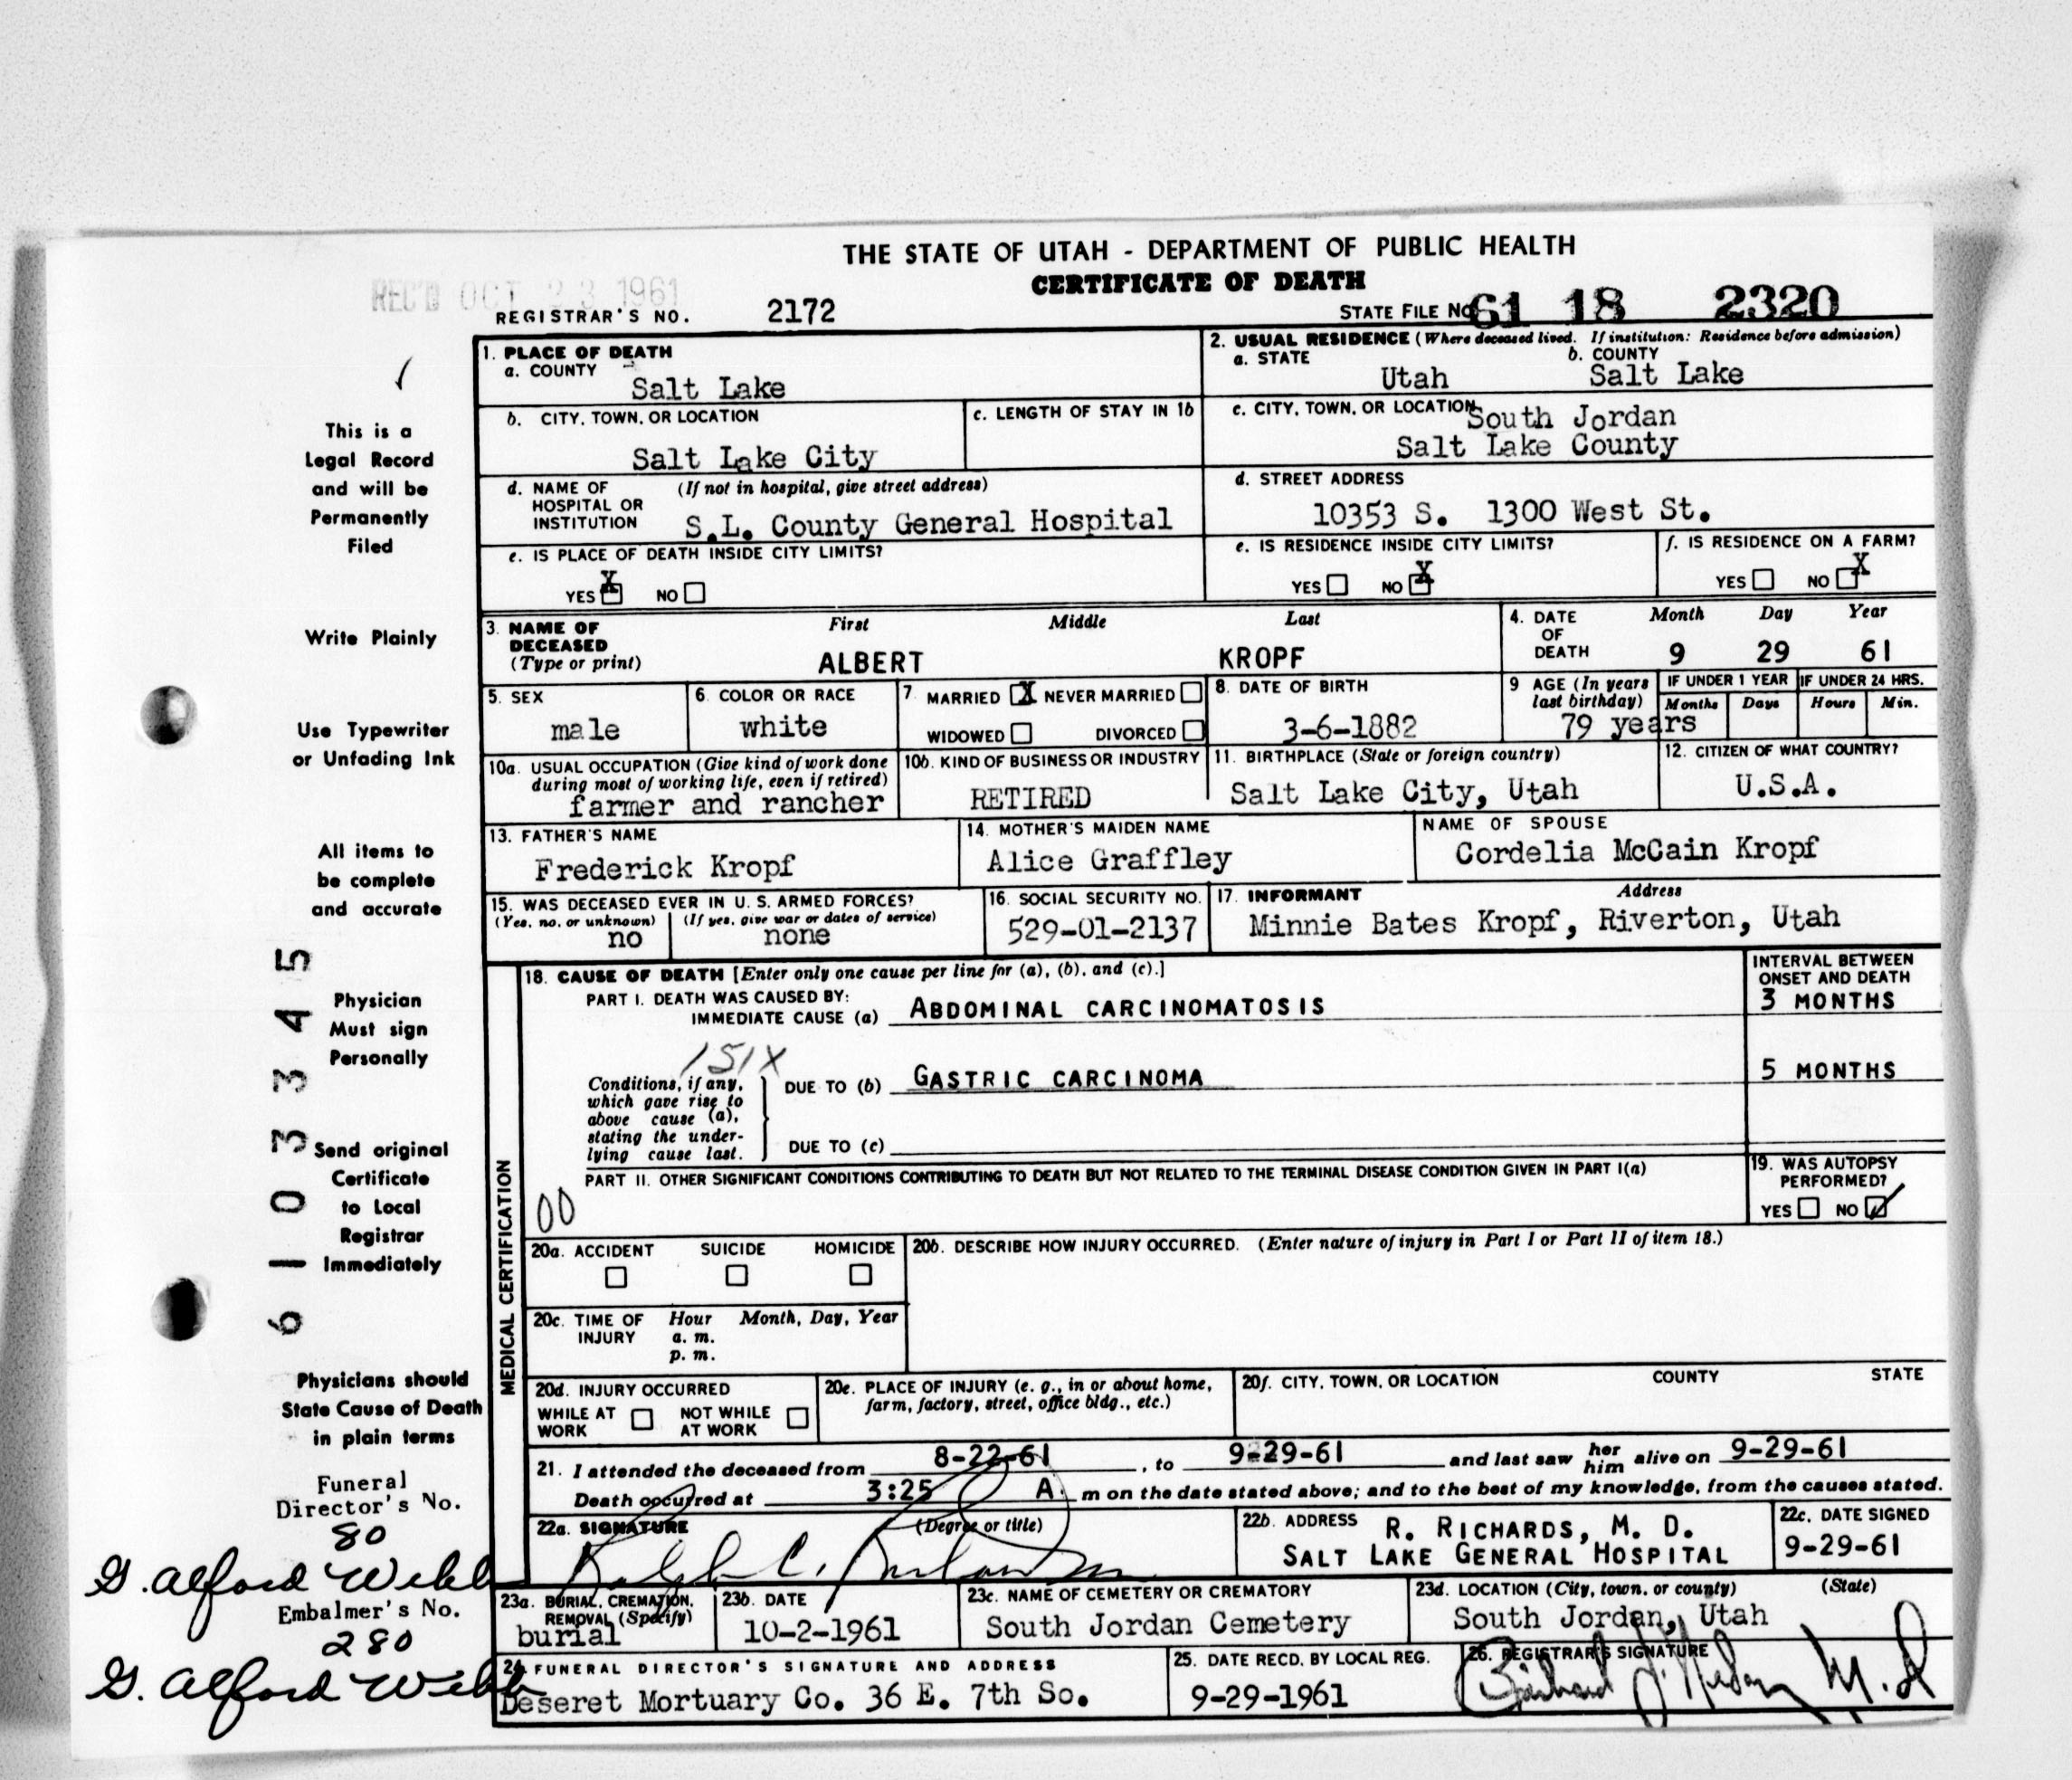 THE STATE OF UTAH - DEPARTMENT OF PUBLIC HEALTH
CERTIFICATE OF DEATH
REC'D OCT 23 1961
REGISTRAR'S NO. 2172
STATE FILE NO. 61 18 2320
This is a
Legal Record
and will be
Permanently
Filed
Write Plainly
Use Typewriter
or Unfading Ink
All items to
be complete
and accurate
Physician
Must sign
Personally
Send original
Certificate
to Local
Registrar
Immediately
Physicians should
State Cause of Death
in plain terms
6 1 0 3 3 4 5
Funeral
Director's No.
80
G. Alford Webb
Embalmer's No.
280
G. Alford Webb
1. PLACE OF DEATH
a. COUNTY
Salt Lake
2. USUAL RESIDENCE (Where deceased lived. If institution: Residence before admission)
a. STATE b. COUNTY
Utah Salt Lake
b. CITY, TOWN, OR LOCATION
Salt Lake City
c. LENGTH OF STAY IN 1b
c. CITY, TOWN, OR LOCATION South Jordan
Salt Lake County
d. NAME OF (If not in hospital, give street address)
HOSPITAL OR
INSTITUTION S.L. County General Hospital
d. STREET ADDRESS
10353 S. 1300 West St.
e. IS PLACE OF DEATH INSIDE CITY LIMITS?
YES X NO
e. IS RESIDENCE INSIDE CITY LIMITS?
YES NO X
f. IS RESIDENCE ON A FARM?
YES NO X
3. NAME OF First Middle Last
DECEASED
(Type or print) ALBERT KROPF
4. DATE Month Day Year
OF
DEATH 9 29 61
5. SEX
male
6. COLOR OR RACE
white
7. MARRIED X NEVER MARRIED
WIDOWED DIVORCED
8. DATE OF BIRTH
3-6-1882
9 AGE (In years
last birthday)
79 years
IF UNDER 1 YEAR IF UNDER 24 HRS.
Months Days Hours Min.
10a. USUAL OCCUPATION (Give kind of work done
during most of working life, even if retired)
farmer and rancher
10b. KIND OF BUSINESS OR INDUSTRY
RETIRED
11. BIRTHPLACE (State or foreign country)
Salt Lake City, Utah
12. CITIZEN OF WHAT COUNTRY?
U.S.A.
13. FATHER'S NAME
Frederick Kropf
14. MOTHER'S MAIDEN NAME
Alice Graffley
NAME OF SPOUSE
Cordelia McCain Kropf
15. WAS DECEASED EVER IN U. S. ARMED FORCES?
(Yes, no, or unknown) (If yes, give war or dates of service)
no none
16. SOCIAL SECURITY NO.
529-01-2137
17. INFORMANT Address
Minnie Bates Kropf, Riverton, Utah
MEDICAL CERTIFICATION
18. CAUSE OF DEATH [Enter only one cause per line for (a), (b), and (c).]
PART I. DEATH WAS CAUSED BY:
IMMEDIATE CAUSE (a) ABDOMINAL CARCINOMATOSIS
INTERVAL BETWEEN
ONSET AND DEATH
3 MONTHS
151X
Conditions, if any,
which gave rise to
above cause (a),
stating the under-
lying cause last.
DUE TO (b) GASTRIC CARCINOMA
5 MONTHS
DUE TO (c)
PART II. OTHER SIGNIFICANT CONDITIONS CONTRIBUTING TO DEATH BUT NOT RELATED TO THE TERMINAL DISEASE CONDITION GIVEN IN PART I(a)
00
19. WAS AUTOPSY
PERFORMED?
YES NO
20a. ACCIDENT SUICIDE HOMICIDE
20b. DESCRIBE HOW INJURY OCCURRED. (Enter nature of injury in Part I or Part II of item 18.)
20c. TIME OF Hour Month, Day, Year
INJURY a. m.
p. m.
20d. INJURY OCCURRED
WHILE AT NOT WHILE
WORK AT WORK
20e. PLACE OF INJURY (e. g., in or about home,
farm, factory, street, office bldg., etc.)
20f. CITY, TOWN, OR LOCATION COUNTY STATE
21. I attended the deceased from 8-22-61, to 9-29-61 and last saw her him alive on 9-29-61
Death occurred at 3:25 A. m on the date stated above; and to the best of my knowledge, from the causes stated.
22a. SIGNATURE (Degree or title)
Ralph C. Richards
22b. ADDRESS R. RICHARDS, M. D.
SALT LAKE GENERAL HOSPITAL
22c. DATE SIGNED
9-29-61
23a. BURIAL, CREMATION,
REMOVAL (Specify)
burial
23b. DATE
10-2-1961
23c. NAME OF CEMETERY OR CREMATORY
South Jordan Cemetery
23d. LOCATION (City, town, or county) (State)
South Jordan, Utah
24. FUNERAL DIRECTOR'S SIGNATURE AND ADDRESS
Deseret Mortuary Co. 36 E. 7th So.
25. DATE RECD. BY LOCAL REG.
9-29-1961
26. REGISTRAR'S SIGNATURE
M.D